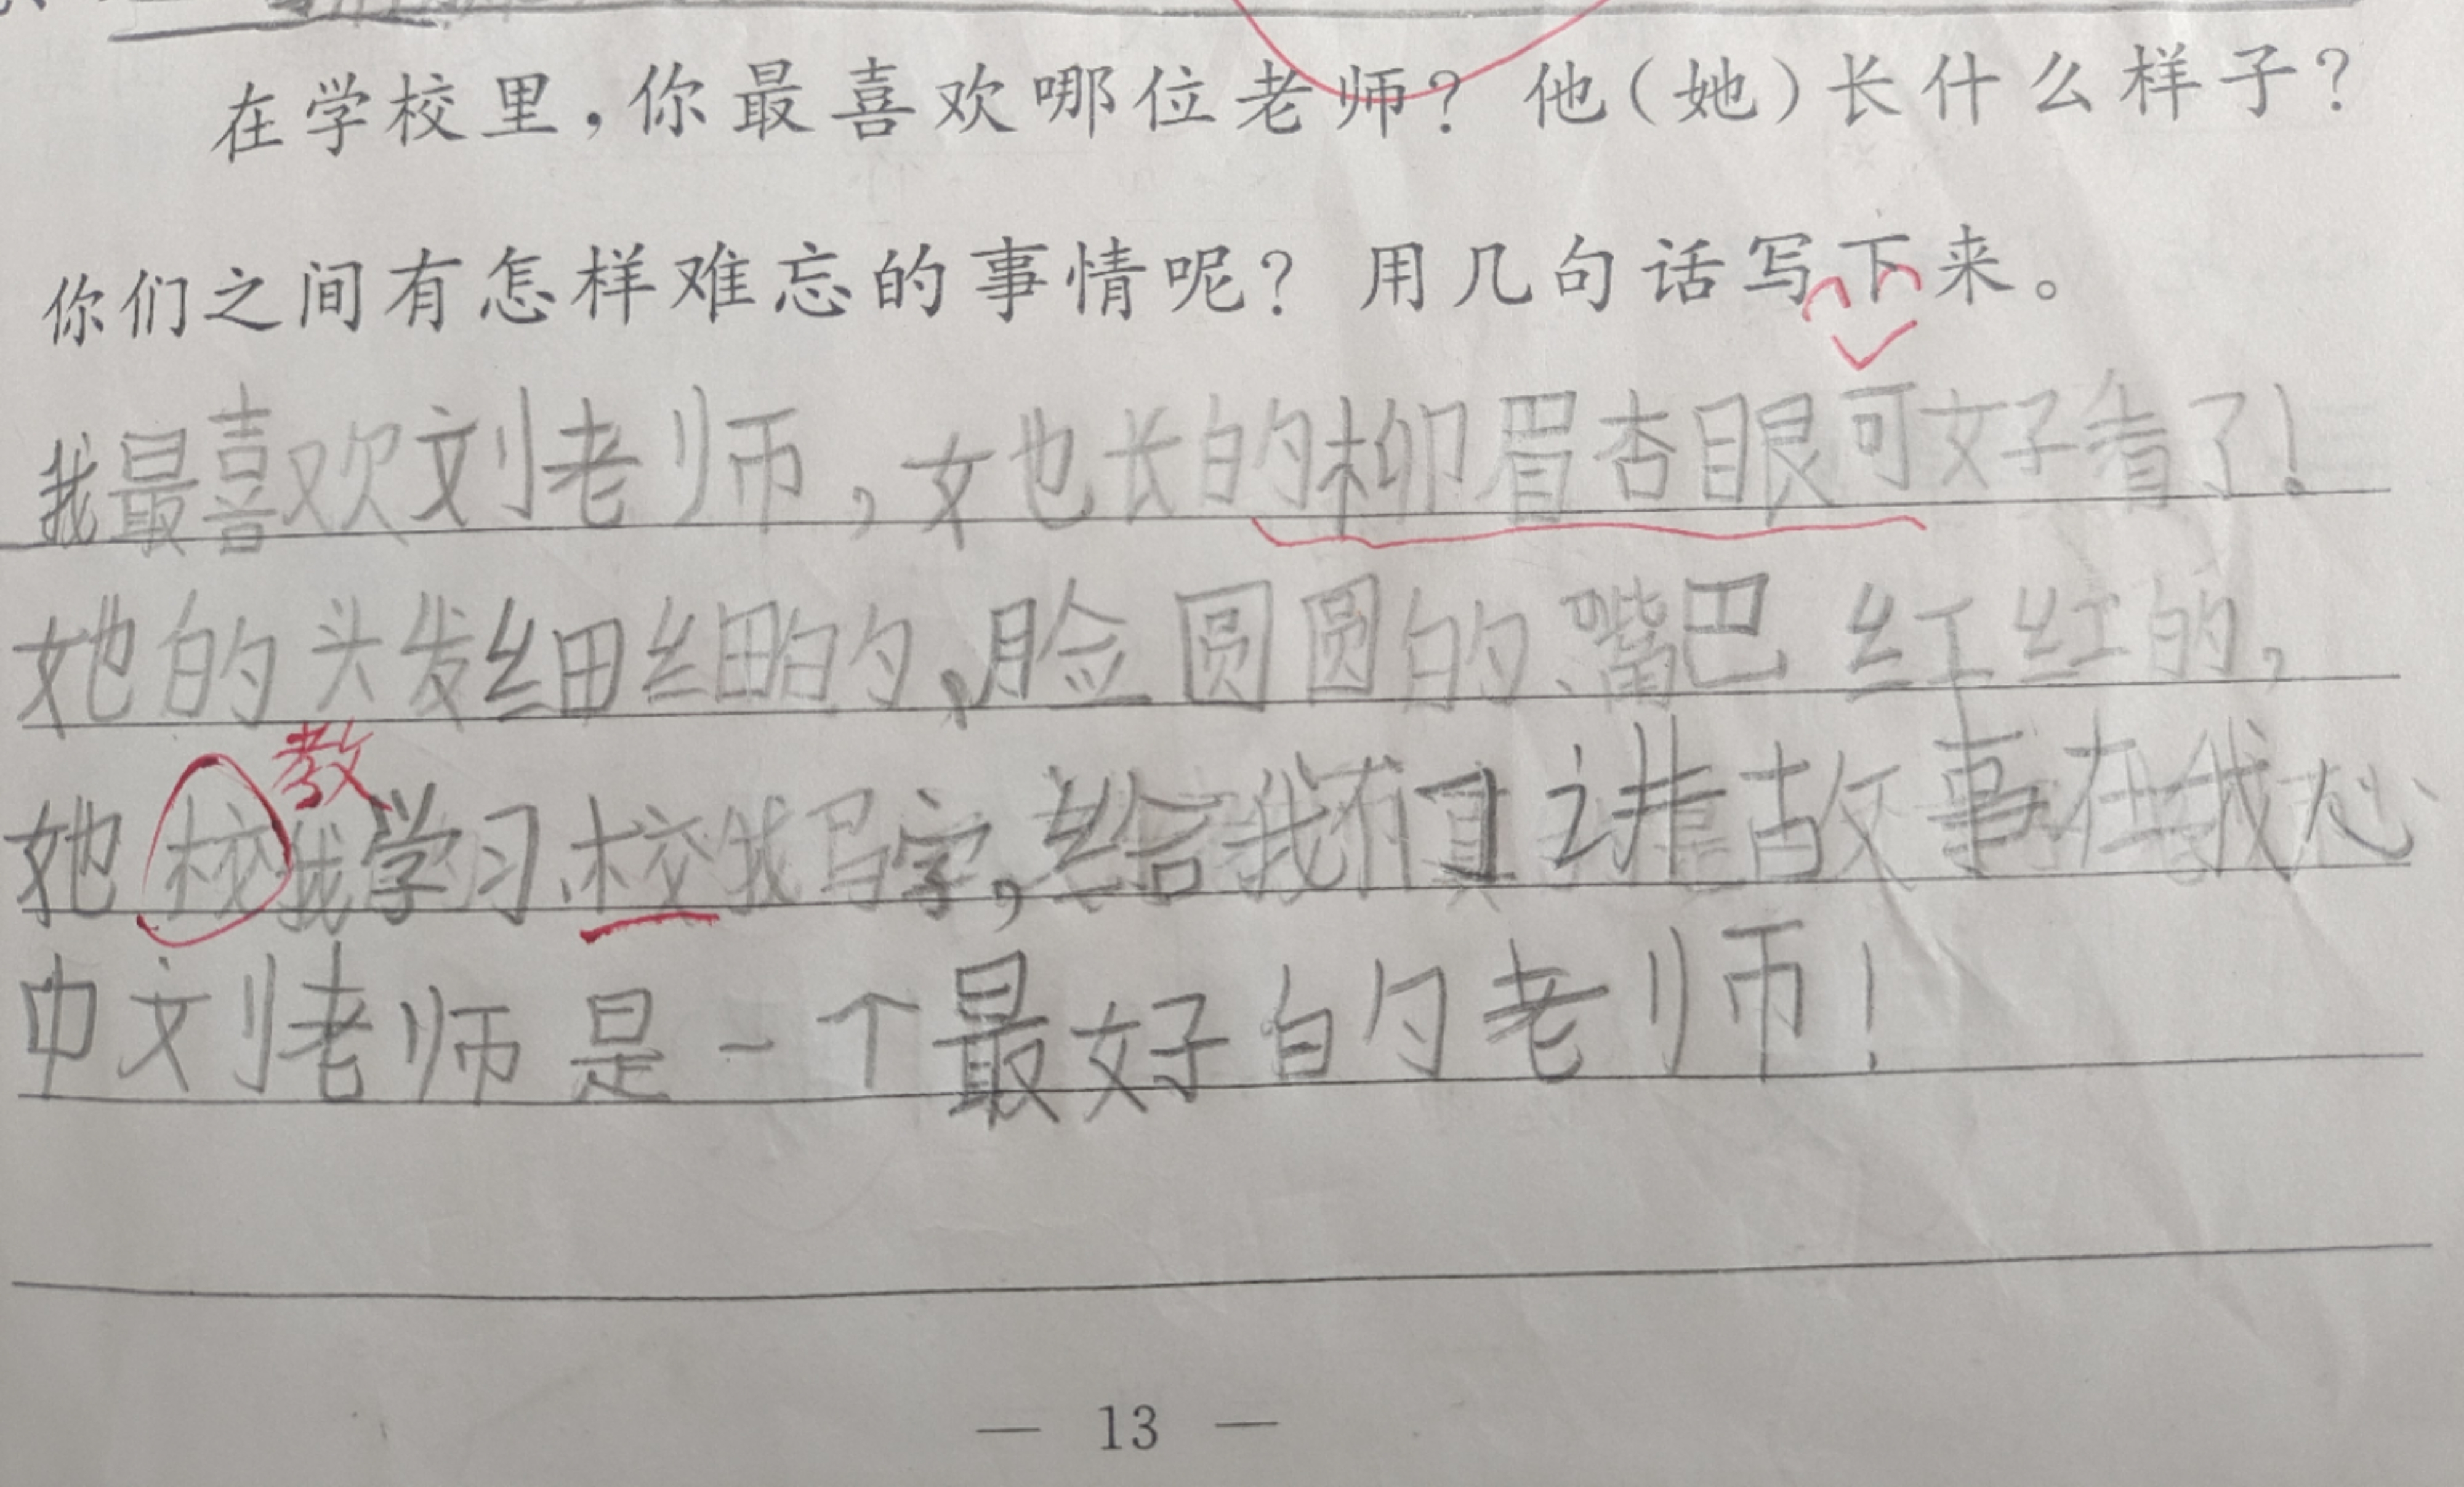 在学校里，你最喜欢哪位老师？他（她）长什么样子？
你们之间有怎样难忘的事情呢？用几句话写下来。
我最喜欢刘老师，她长的柳眉杏眼可好看了！
她的头发细细的、脸圆圆的、嘴巴红红的，
教
她校我学习、校我写字，给我们讲故事在我心
中刘老师是一个最好的老师！
— 13 —